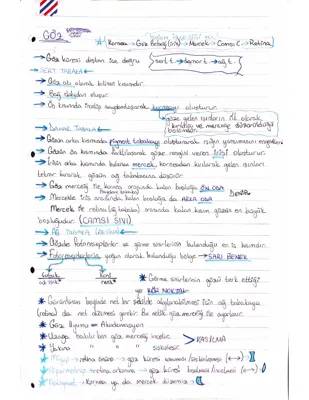 GÖZ
* Kornea → Göz Bebeği → Mercek → Camsı C. → Retina
→ Göz küresi dıştan içe doğru (sert t. → damar t. → ağ t.)
→ SERT TABAKA
→ Göz akı olarak bilinen kısımdır.
→ Bağ dokudan oluşur.
→ Ön kısımda korneayı oluşturur.
göze gelen ışınların ilk olarak kırıldığı ve merceğe
→ DAMAR TABAKA
→ Gözün arka kısmındaki pigment tabakayı oluşturarak ışığın yansımasını
→ Gözün ön kısmında göze rengini veren irisi oluşturur.
→ İrisin arka kısmında bulunan mercek, korneadan kırılarak gelen ışınları
tekrar kırarak gözün ağ tabakasına düşürür.
→ Göz merceği ile kornea arasında kalan boşluğa ÖN ODA
→ Mercekle iris arasında kalan boşluğa da ARKA ODA DENİR
Mercek ile retina (ağ tabaka) arasında kalan kısım gözün en büyük
boşluğudur. (CAMSI SIVI)
→ AĞ TABAKA (RETİNA)
→ Gözde fotoreseptörler ve görme sinirlerinin bulunduğu en iç kısımdır.
→ Fotoreseptörlerin yoğun olarak bulunduğu bölge → SARI BENEK
* Görme sinirlerinin gözü terk ettiği
yer KÖR NOKTA
* Görüntünün beyinde net bir şekilde algılanabilmesi için ağ tabakaya
(retina) da net düşmesi gerekir. Bu etki göz merceği ile ayarlanır.
* Göz Uyumu = Akomodasyon
* Uzağa bakılır ken göz merceği incelir
* Yakına " " " şişkinleşir
KASILMA
* Miyop → retina önüne → göz küresi
* Hipermetrop → retina arkasına → göz küresi
* Astigmat → Kornea ya da mercek düzensiz